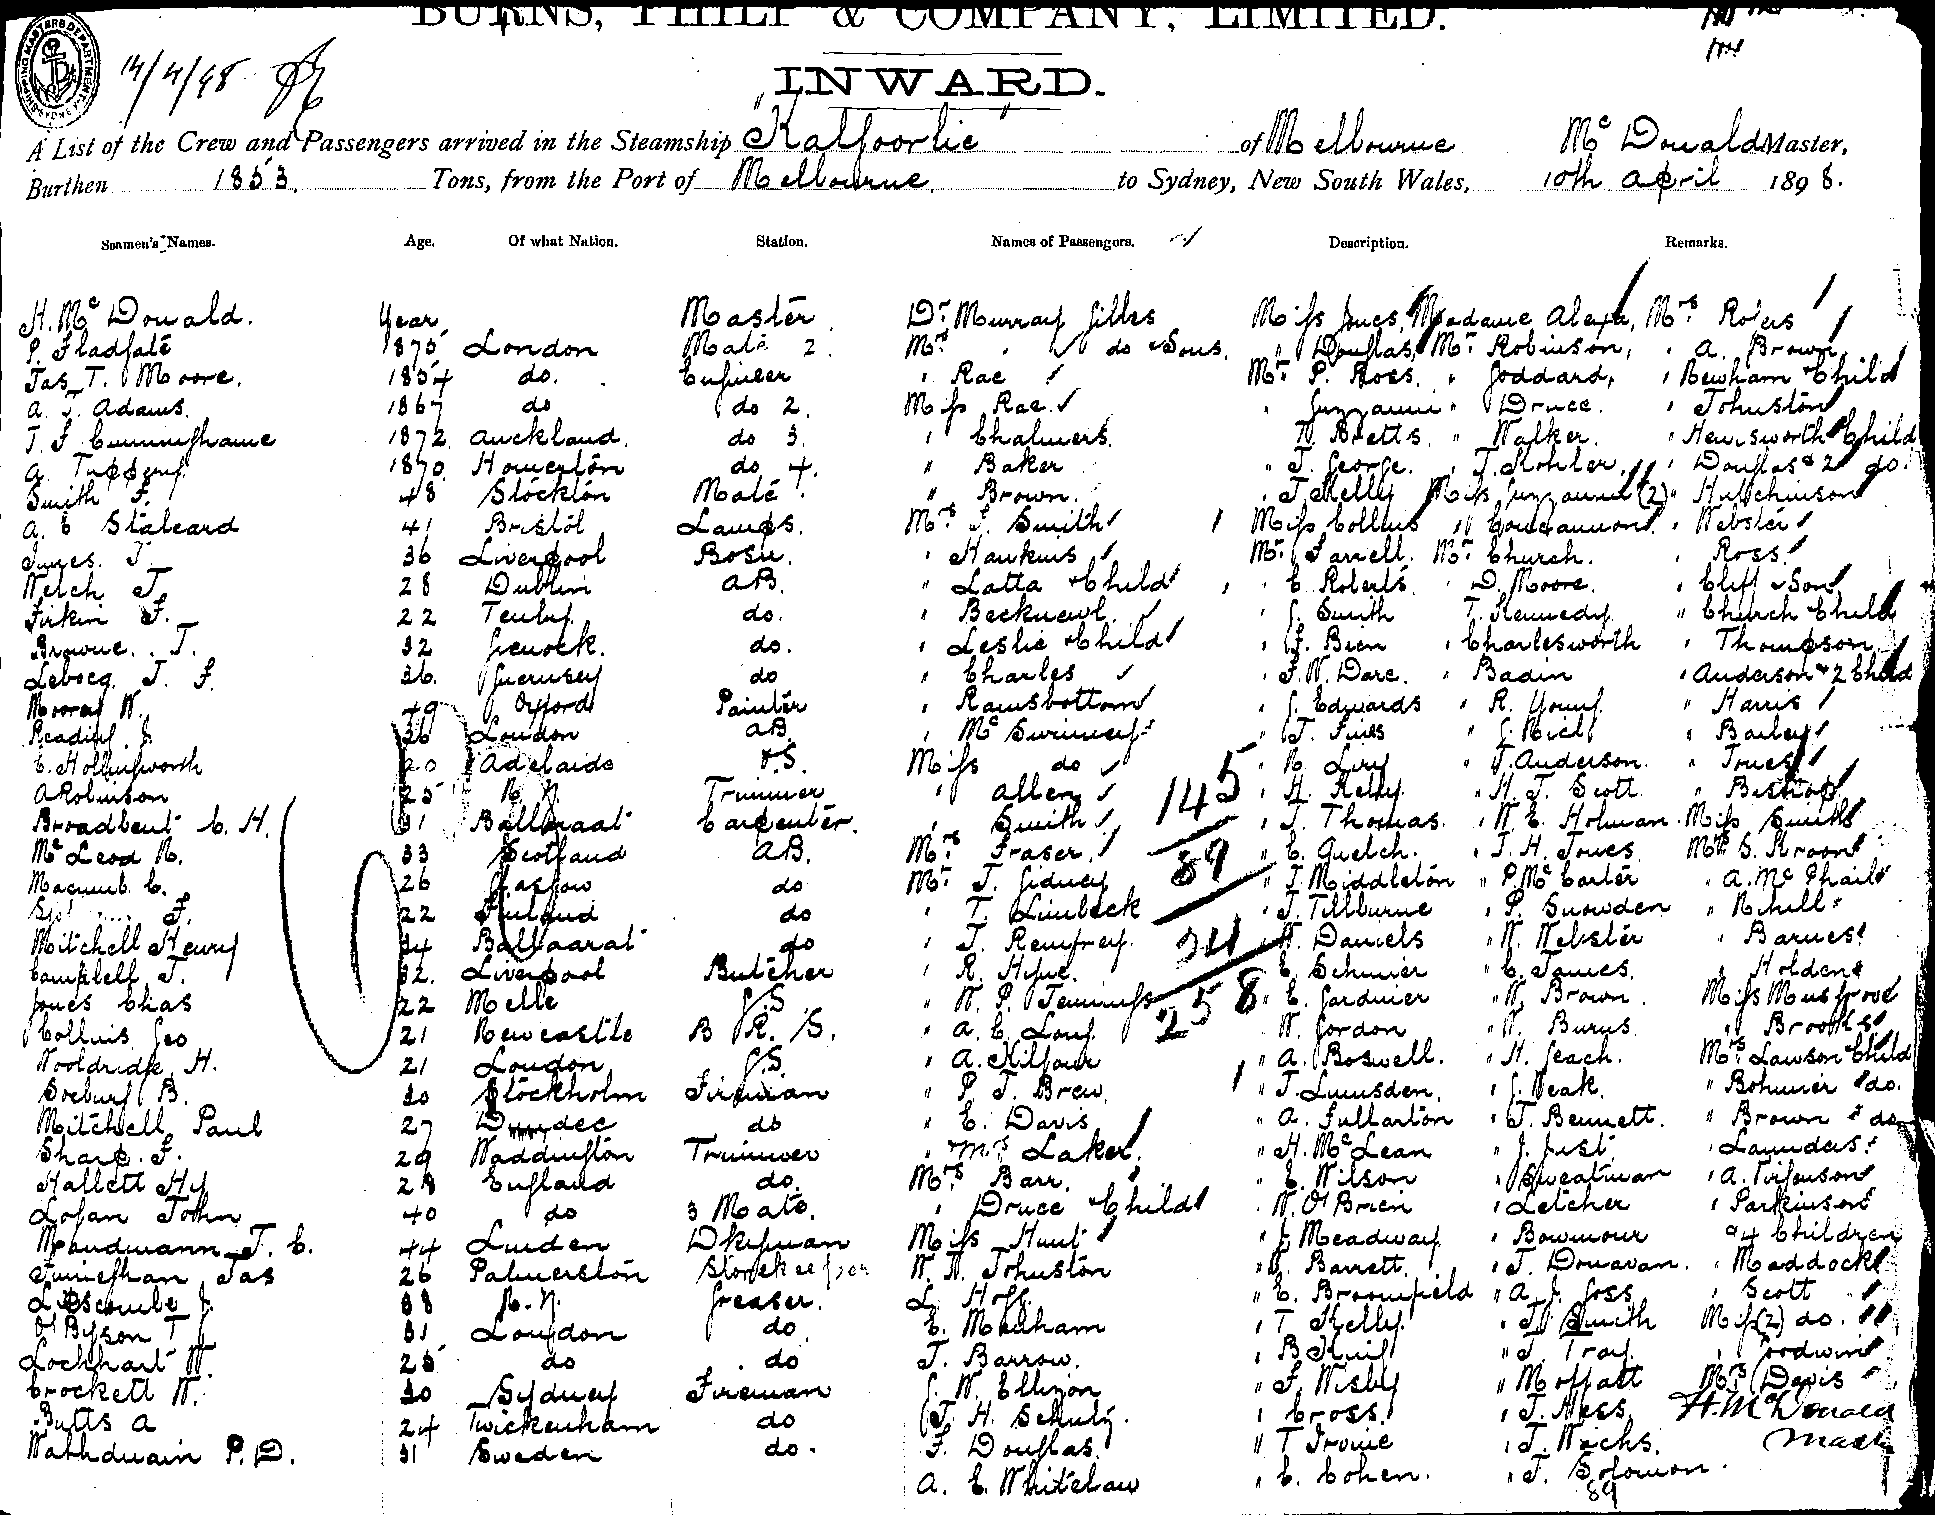 BURNS, PHILP & COMPANY, LIMITED.
14/4/98
INWARD.
A List of the Crew and Passengers arrived in the Steamship "Kalgoorlie" of Melbourne Mc Donald Master,
Burthen 1853 Tons, from the Port of Melbourne to Sydney, New South Wales, 10th April 1898.
Seamen's Names. Age. Of what Nation. Station. Names of Passengers. Description. Remarks.
H. Mc Donald. Year Master Dr Murray Gilles Miss Jones, Madame Mrs Rogers
P. 1875 London Mate 2. Mrs do & Sons. " Douglas, Mr Robinson, " A. Brown
Jas T. Moore. 1854 do. Engineer " Rae Mr P. Ross. " Goddard, " Newham & Child
A. J. Adams. 1867 do do 2. Miss Rae. " " Druce. " Johnston
T F Cunninghame 1872 Auckland. do 3. " Chalmers. " Bretts. " Walker. " Hemsworth & Child
A. 1870 do 4. " Baker " J. George. " J. Kohler. " Douglas & 2 do.
Smith F. 48 Stockton Mate. " Brown. " J. Kelly Miss (2) " Hutchinson
A. E 41 Bristol Lamps. Mrs Smith Miss Collins " " Webster
Jones. T. 36 Liverpool Bosn. " Hankins Mr Farrell. Mr Church. " Ross
Welch J. 28 Dublin AB. " Latta & Child " E. Roberts " D. Moore. " Cliff & Son
Firkin F. 22 Tenby. do. " " G. Smith " T. Kennedy " Church & Child
Browne. T. 32 Greenock. do. " Leslie & Child " Bien " Charlesworth " Thompson
Lebocq. J. F. 36. Guernsey do " Charles " F. W. Dare. " Badin " Anderson & 2 Child
Moore W. 49 Oxford Painter " Ramsbottom " G. Edwards " R. Young. " Harris
Reading. J. 36 London AB. " Mc Swinney " J. Fines " G. Rich " Bailey
C. Hollingsworth 20 Adelaide O.S. Miss do " " J. Anderson. " Jones
A Robinson 25 N. Z. Trimmer " Allen " H. Kelly. " H. J. Scott. " Bishop
Broadbent C. H. 31 Ballaraat Carpenter. " Smith 145 " J. Thomas. " W. E. Holman. Miss Smith
Mc Leod N. 33 Scotland AB. Mrs Fraser. " E. Quelch. " J. H. Jones Mrs S. Kroon
Macnub. C. 26 Glasgow do Mr J. Gidney 89 " J Middleton " P. Mc Carter " A. Mc Phail
F. 22 Finland do " T. Limbeck " J. Tillburne " P. Snowden " Nihill
Mitchell Henry 24 Ballaarat do " J. Renfrey. 24 " W. Daniels " W. Webster " Barnes
Campbell J. 32. Liverpool Butcher " R. Hyne. " E. Schmier " C. James. " Holden
Jones Chas 22 Melb G.S " W. P. Jennings 258 " E. Gardnier " W. Brown. Miss Musgrove
Collins Geo 21 Newcastle B. R. S. " A. E. Long. " W. Gordon " W. Burns. " Brooks
Wooldridge H. 21 London G.S. " A. Kilgour " A. Boswell. " H. Geach. Mrs Lawson & Child
B. 30 Stockholm Fireman " P. J. Brew " J. Lumsden. " G. Weak. " Bohmer & do.
Mitchell Paul 27 Dundee do " E. Davis " A. Fullarton " J. Bennett. " Brown & do
Sharp. F. 29 Waddington Trimmer " Mrs Laker. " H. Mc Lean " J. Just " Launders.
Hallett Hy 28 England do. Mrs Barr. " E. Wilson " Sweatman " A. Firguson
Logan John 40 do 3 Mate. " Druce & Child " W. O'Brien " Letcher " Parkinson
Mandmann J. C. 44 Linden Dkyman Miss Hunt " J. Meadway " Bowmour & 4 Children
Finieghan Jas 26 Palmerston Storekeeper W. N. Johnston " W. Barrett. " J. Donavan. " Maddock
Lipscombe J. 38 N. Z. Greaser. L. Hogg. " E. Broomfield " A. J. Goss " Scott
O'Byson T 31 London do. E. Meelham " T Kelly. " J. Smith Miss (2) do.
Lockhart W. 25 do do J. Barrow. " B King " J. Tray. " Goodwin
Crockett W. 30 Sydney Fireman G. W. Ellison " F. Nisby " Moffatt Mrs Davis
Butts A 24 Twickenham do J. H. Schulz. " Cross. " J. Ness H. Mc Donald
Wathdwain P. D. 31 Sweden do. F. Douglas. " T Irvine " J. Wachs. Master
A. E. Whitelaw " C. Cohen. " J. Solomon.
89